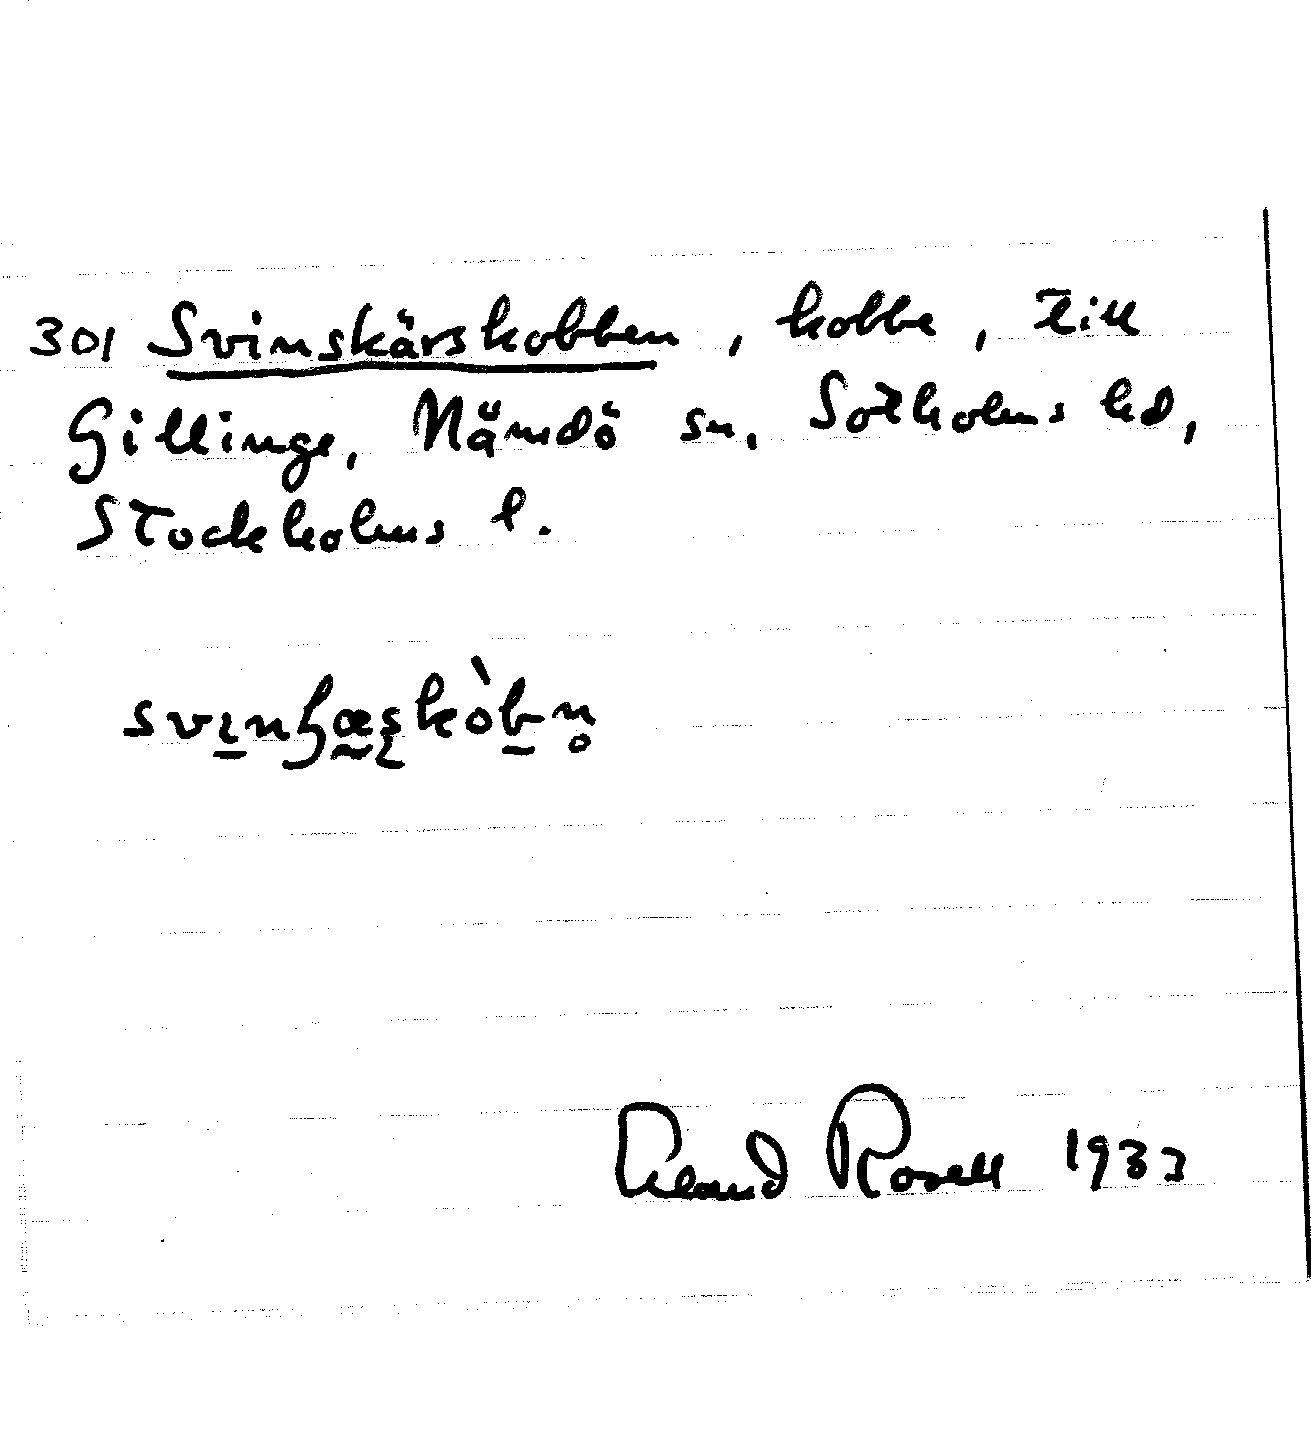 301 Svinskärskobben, kobbe, till
Gillinge, Nämdö sn, Sotholms hd,
Stockholms l.
Rosell 1933